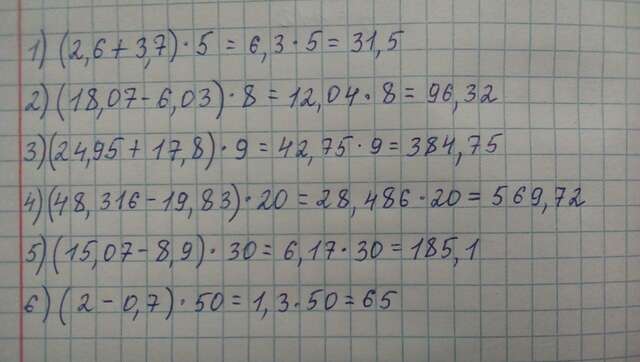 1) (2,6 + 3,7) · 5 = 6,3 · 5 = 31,5
2) (18,07 - 6,03) · 8 = 12,04 · 8 = 96,32
3) (24,95 + 17,8) · 9 = 42,75 · 9 = 384,75
4) (48,316 - 19,83) · 20 = 28,486 · 20 = 569,72
5) (15,07 - 8,9) · 30 = 6,17 · 30 = 185,1
6) (2 - 0,7) · 50 = 1,3 · 50 = 65